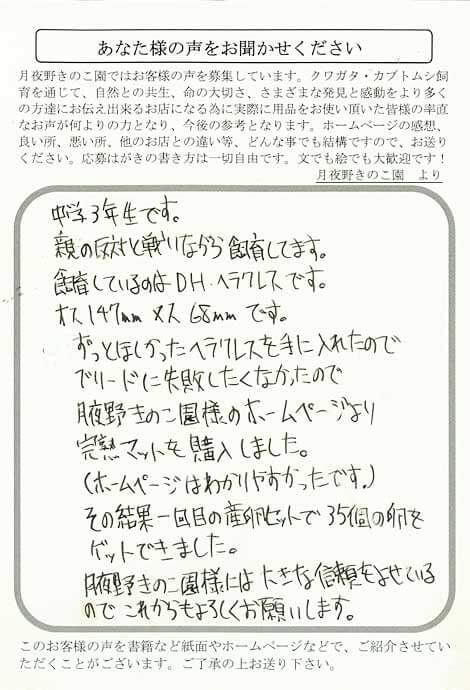 あなた様の声をお聞かせください
月夜野きのこ園ではお客様の声を募集しています。クワガタ・カブトムシ飼
育を通じて、自然との共生、命の大切さ、さまざまな発見と感動をより多く
の方達にお伝え出来るお店になる為に実際に用品をお使い頂いた皆様の率直
なお声が何よりの力となり、今後の参考となります。ホームページの感想、
良い所、悪い所、他のお店との違い等、どんな事でも結構ですので、お送り
ください。応募はがきの書き方は一切自由です。文でも絵でも大歓迎です！
月夜野きのこ園　より
中学3年生です。
親の反対と戦いながら飼育してます。
飼育しているのはDH.ヘラクレスです。
オス147mm メス 68mmです。
ずっとほしかったヘラクレスを手に入れたので
ブリードに失敗したくなかったので
月夜野きのこ園様のホームページより
完熟マットを購入しました。
（ホームページはわかりやすかったです。）
その結果一回目の産卵セットで35個の卵を
ゲットできました。
月夜野きのこ園様には大きな信頼をよせている
のでこれからもよろしくお願いします。
このお客様の声を書籍など紙面やホームページなどで、ご紹介させてい
ただくことがございます。ご了承の上お送り下さい。